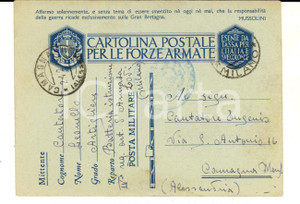 Affermo solennemente, e senza tema di essere smentito né oggi né mai, che la responsabilità
della guerra ricade esclusivamente sulla Gran Bretagna.
MUSSOLINI
CARTOLINA POSTALE
PER LE FORZE ARMATE
ESENTE DA TASSA PER L'ITALIA
MILANO
Mittente
Cognome Cantatore
Nome
Grado Artigliere
Reparto Batteria
art. S.
POSTA MILITARE
Al Sign.
Cantatore Eugenio
Via S. Antonio 16
Camagna Monf.
(Alessandria)